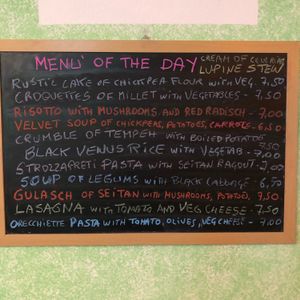 MENU' OF THE DAY
CREAM OF
LUPINE STEW
RUSTIC CAKE OF CHICKPEA FLOUR WITH VEG 7,50
CROQUETTES OF MILLET WITH VEGETABLES - 7,50
RISOTTO WITH MUSHROOMS AND RED RADISCH - 7,00
VELVET SOUP OF CHICKPEAS, POTATOES, CARROTS 6,50
CRUMBLE OF TEMPEH WITH BOILED POTATOES 7,50
BLACK VENUS RICE WITH VEGETAB - 7,00
STROZZAPRETI PASTA WITH SEITAN RAGOUT 7,00
SOUP OF LEGUMS WITH BLACK CABBAGE - 6,50
GULASCH OF SEITAN WITH MUSHROOMS, POTATOES 7,50
LASAGNA WITH TOMATO AND VEG CHEESE - 7,50
ORECCHIETTE PASTA WITH TOMATO, OLIVES, VEG CHEESE - 7,00